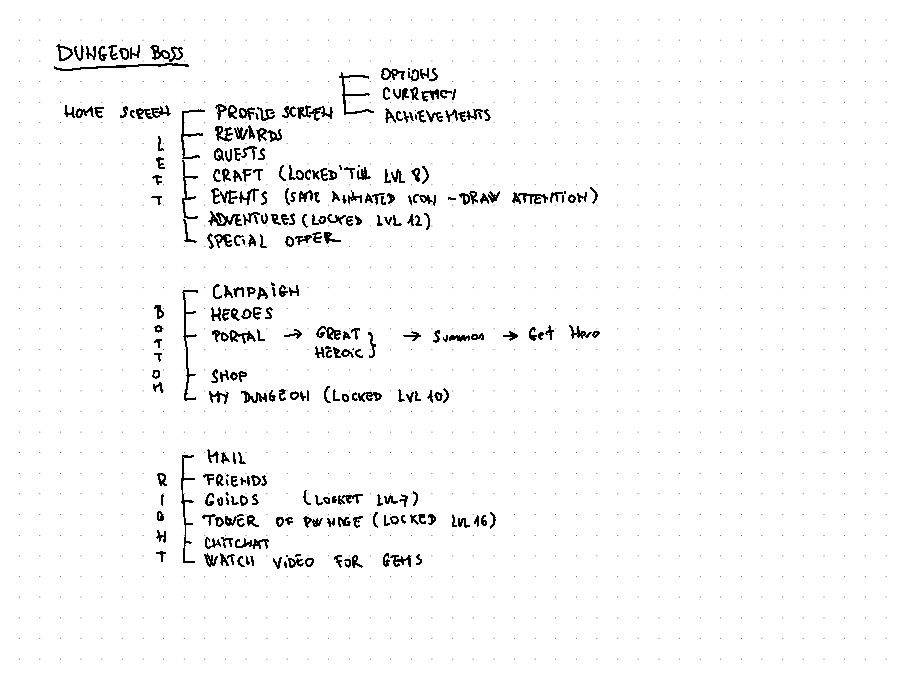 DUNGEON BOSS
OPTIONS
CURRENCY
ACHIEVEMENTS
HOME SCREEN
PROFILE SCREEN
REWARDS
QUESTS
CRAFT (LOCKED 'TILL LVL 8)
EVENTS (SAME ANIMATED ICON - DRAW ATTENTION)
ADVENTURES (LOCKED LVL 12)
SPECIAL OFFER
LEFT
CAMPAIGN
HEROES
PORTAL → GREAT HEROIC } → Summon → Get Hero
SHOP
MY DUNGEON (LOCKED LVL 10)
BOTTOM
MAIL
FRIENDS
GUILDS (LOCKET LVL 7)
TOWER OF PWNAGE (LOCKED LVL 16)
CHITCHAT
WATCH VIDEO FOR GEMS
RIGHT